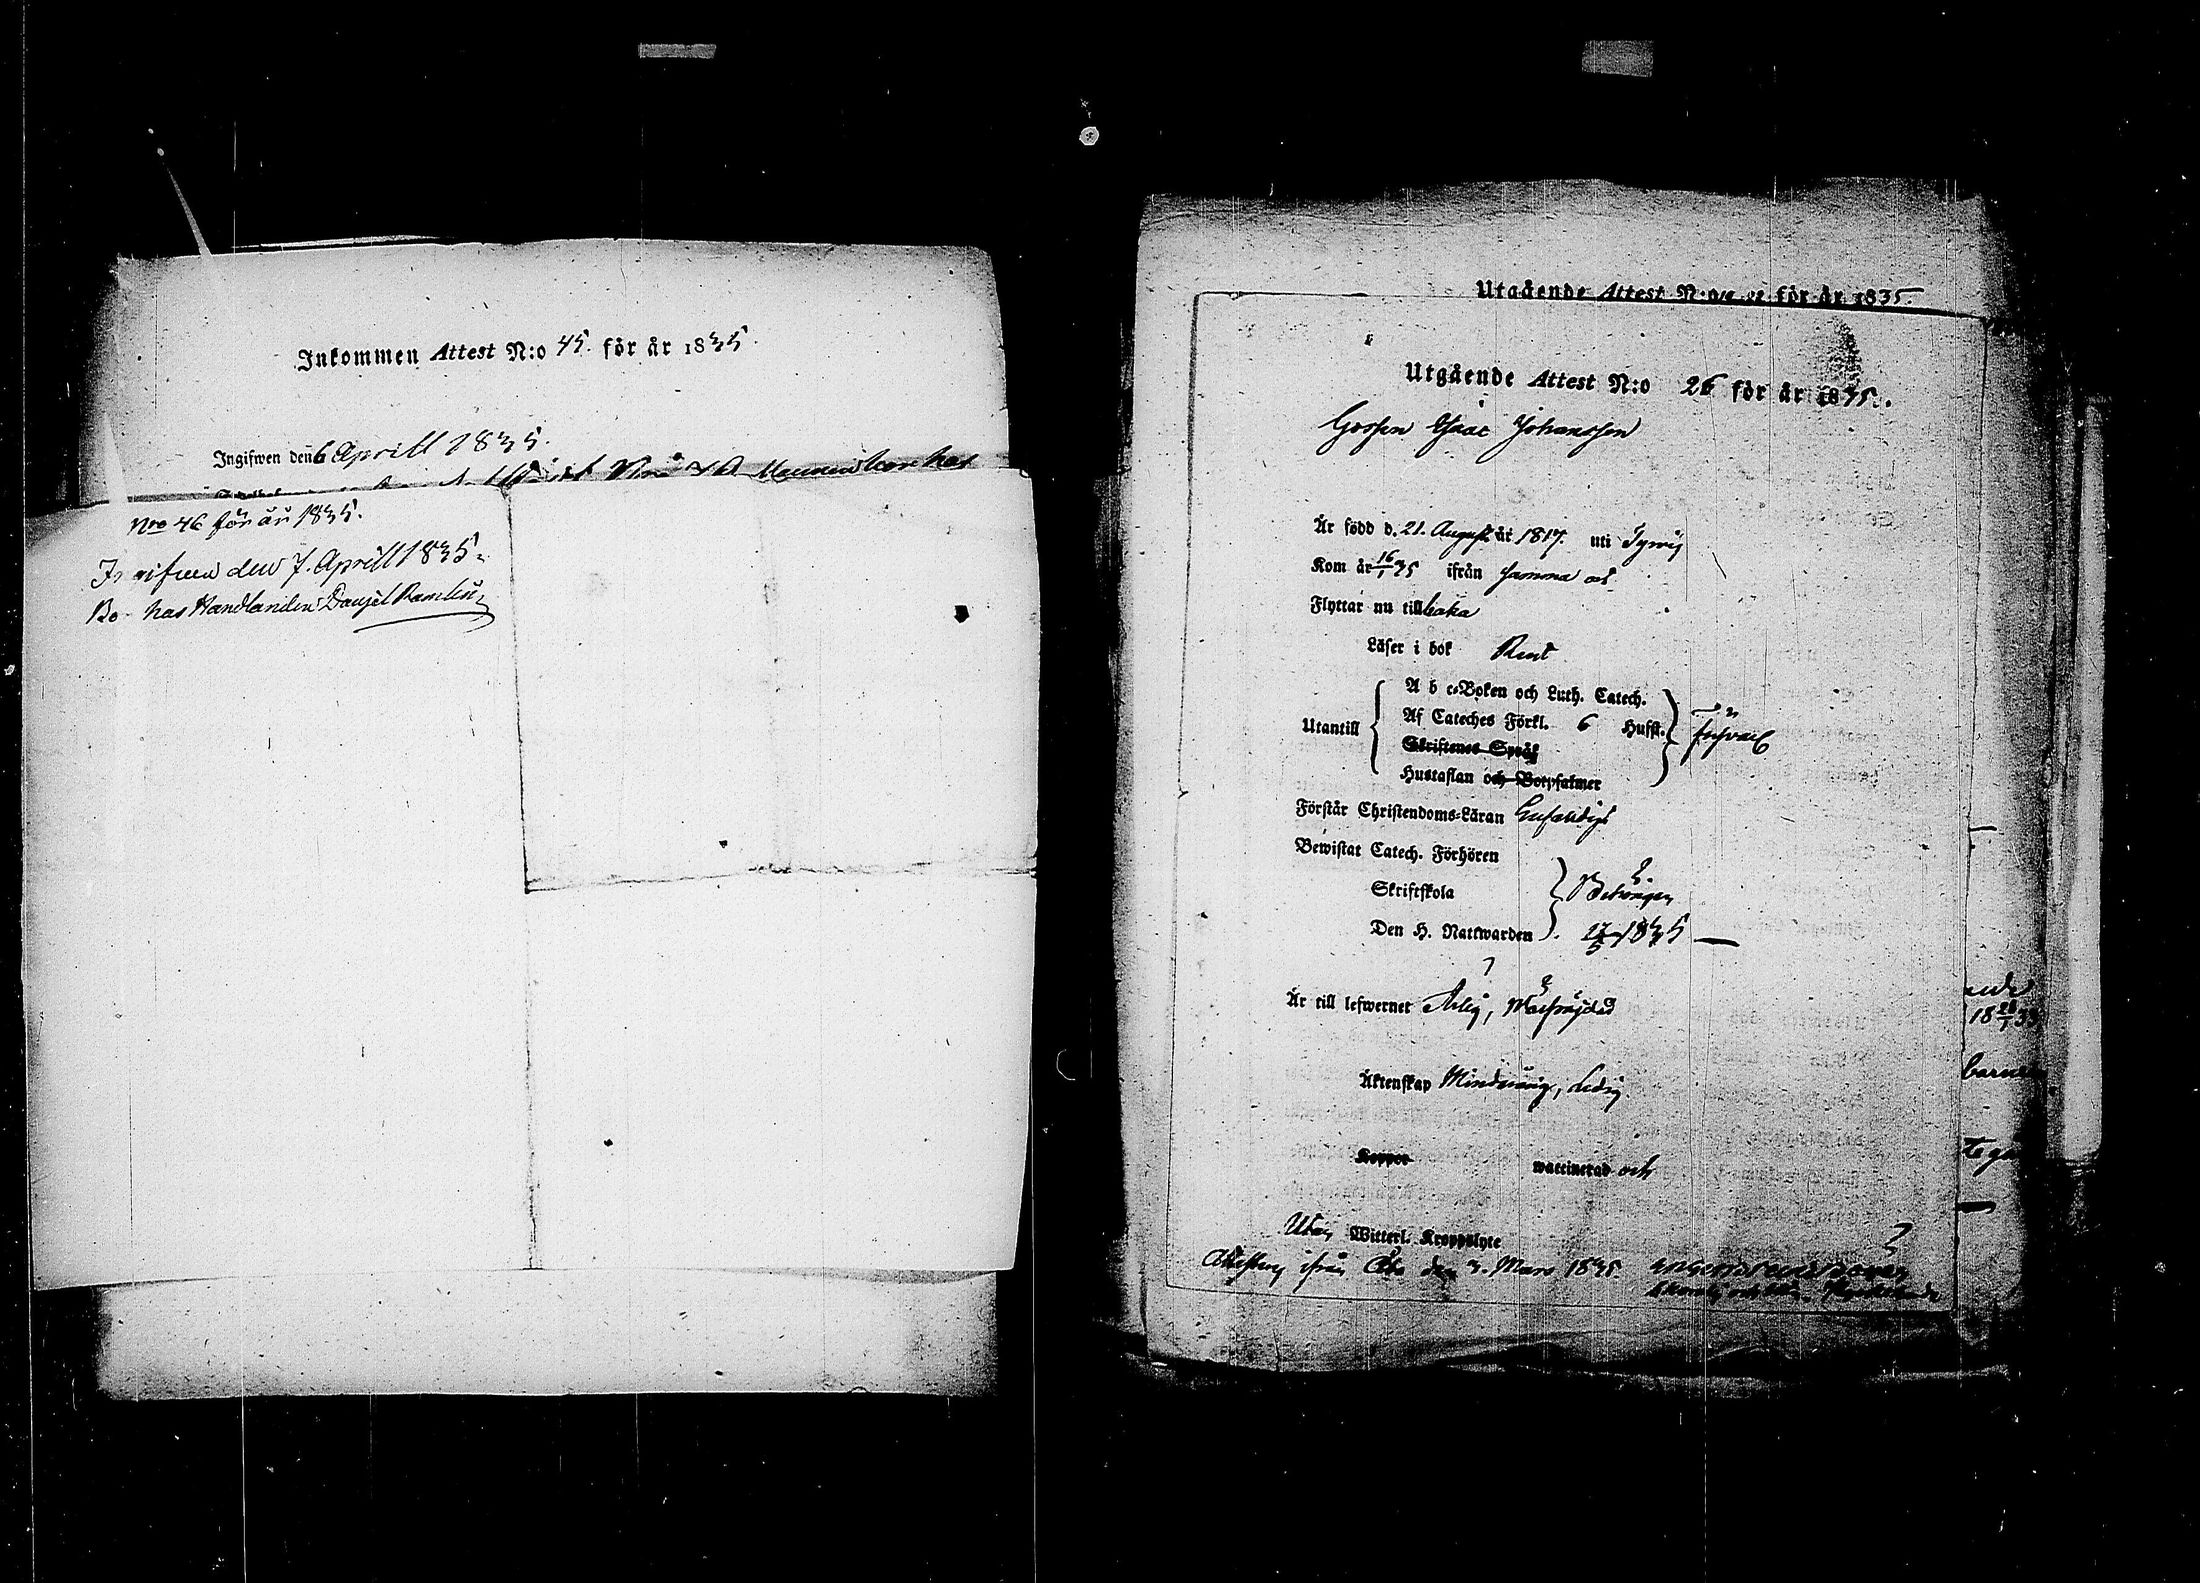 Inkommen Attest N:o 45. för år 1835.
Ingifwen den 6 Aprill 1835.
Nro 46 för år 1835.
Ingifwen den 7. Aprill 1835.
Bo hos Handlanden Danjel Ramlin
Utgående Attest N:o för år 1835.
Utgående Attest N:o 26 för år 1835.
Gossen Isaac Johansson
Är född d. 21. August år 1817. uti Tyrvis
Kom år 16/1 35 ifrån samma ort
Flyttar nu tillbaka
Läser i bok Rent
A b c-Boken och Luth. Catech.
Utantill Af Cateches Förkl. 6 Hufst.
Skriftenes Språk
Hustaflan och Botpsalmer
Förstår Christendoms-Läran Enfaldigt
Bewistat Catech. Förhören
Skriftskola
Den H. Nattwarden 1835
Är till lefwernet Ärlig,
Äktenskap Mindreårig, Ledig
Koppor waccinerad och
Utan Witterl. Kroppslyte
ifrån Åbo den 3. Mars 1835.